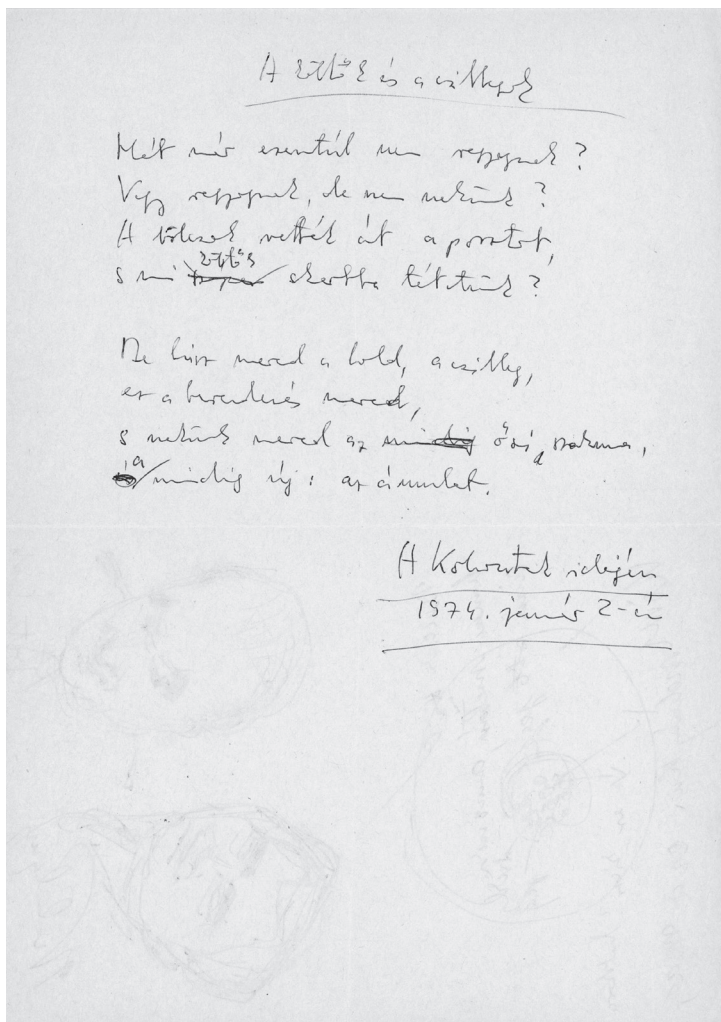 A költők és a csillagok
Hát már ezentúl nem ragyognak?
Vagy ragyognak, de nem nekünk?
A bölcsek vették át a posztot,
költők
s mi skartba tétetünk?
De hisz marad a hold, a csillag,
ez a berendezés marad,
s nekünk marad az mindig ősi szakma,
a mindig új: az ámulat.
A Kohoutek idején
1974. január 2-án